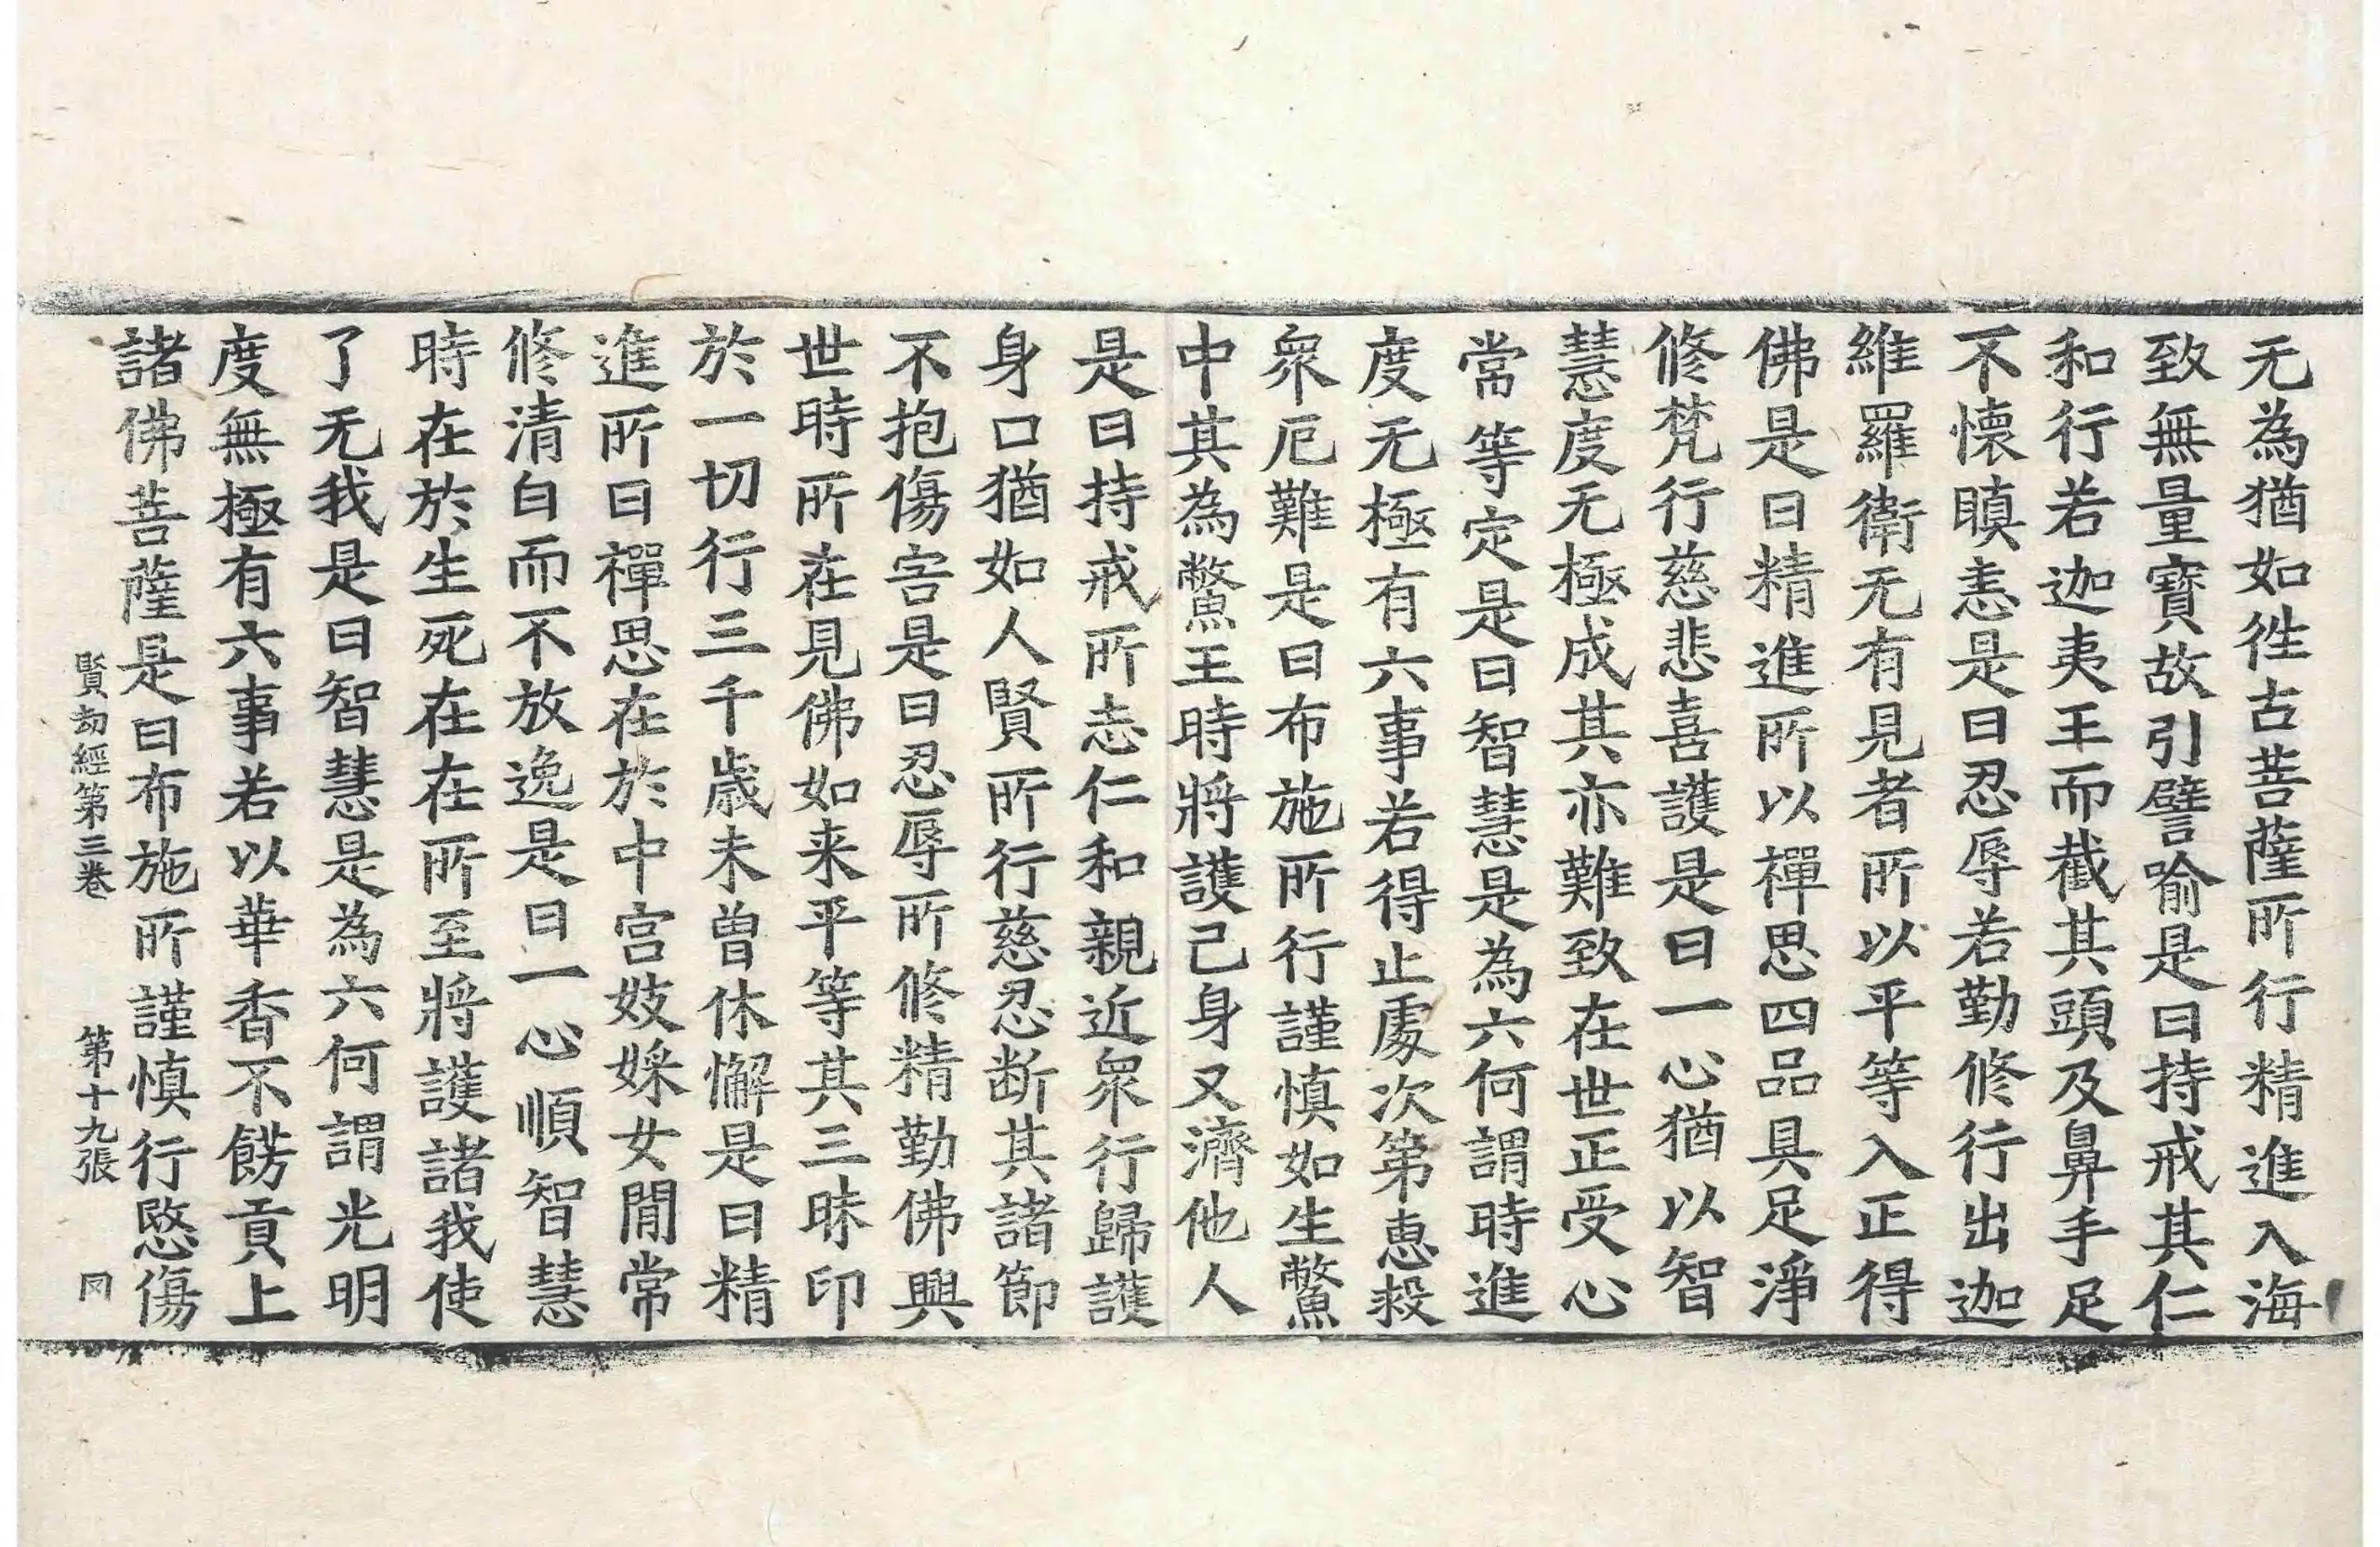 无為猶如徃古菩薩所行精進入海
致無量寳故引譬喻是曰持戒其仁
和行若迦夷王而截其頭及鼻手足
不懷瞋恚是曰忍辱若勤修行出迦
維羅衛无有見者所以平等入正得
佛是曰精進所以禪思四品具足淨
修梵行慈悲喜護是曰一心猶以智
慧度无極成其亦難致在世正受心
當等定是曰智慧是為六何謂時進
度无極有六事若得止處次第恵救
衆厄難是曰布施所行謹慎如生鱉
中其為鱉王時將護己身又濟他人
是曰持戒所志仁和親近衆行歸護
身口猶如人賢所行慈忍断其諸節
不抱傷害是曰忍辱所修精勤佛興
世時所在見佛如来平等其三昧印
於一切行三千歲未曾休懈是曰精
進所曰禪思在於中宮妓婇女閒常
修清白而不放逸是曰一心順智慧
時在於生死在在所至將護諸我使
了无我是曰智慧是為六何謂光明
度無極有六事若以華香不餝貢上
諸佛菩薩是曰布施所謹慎行愍傷
賢劫經第三卷 第十九張